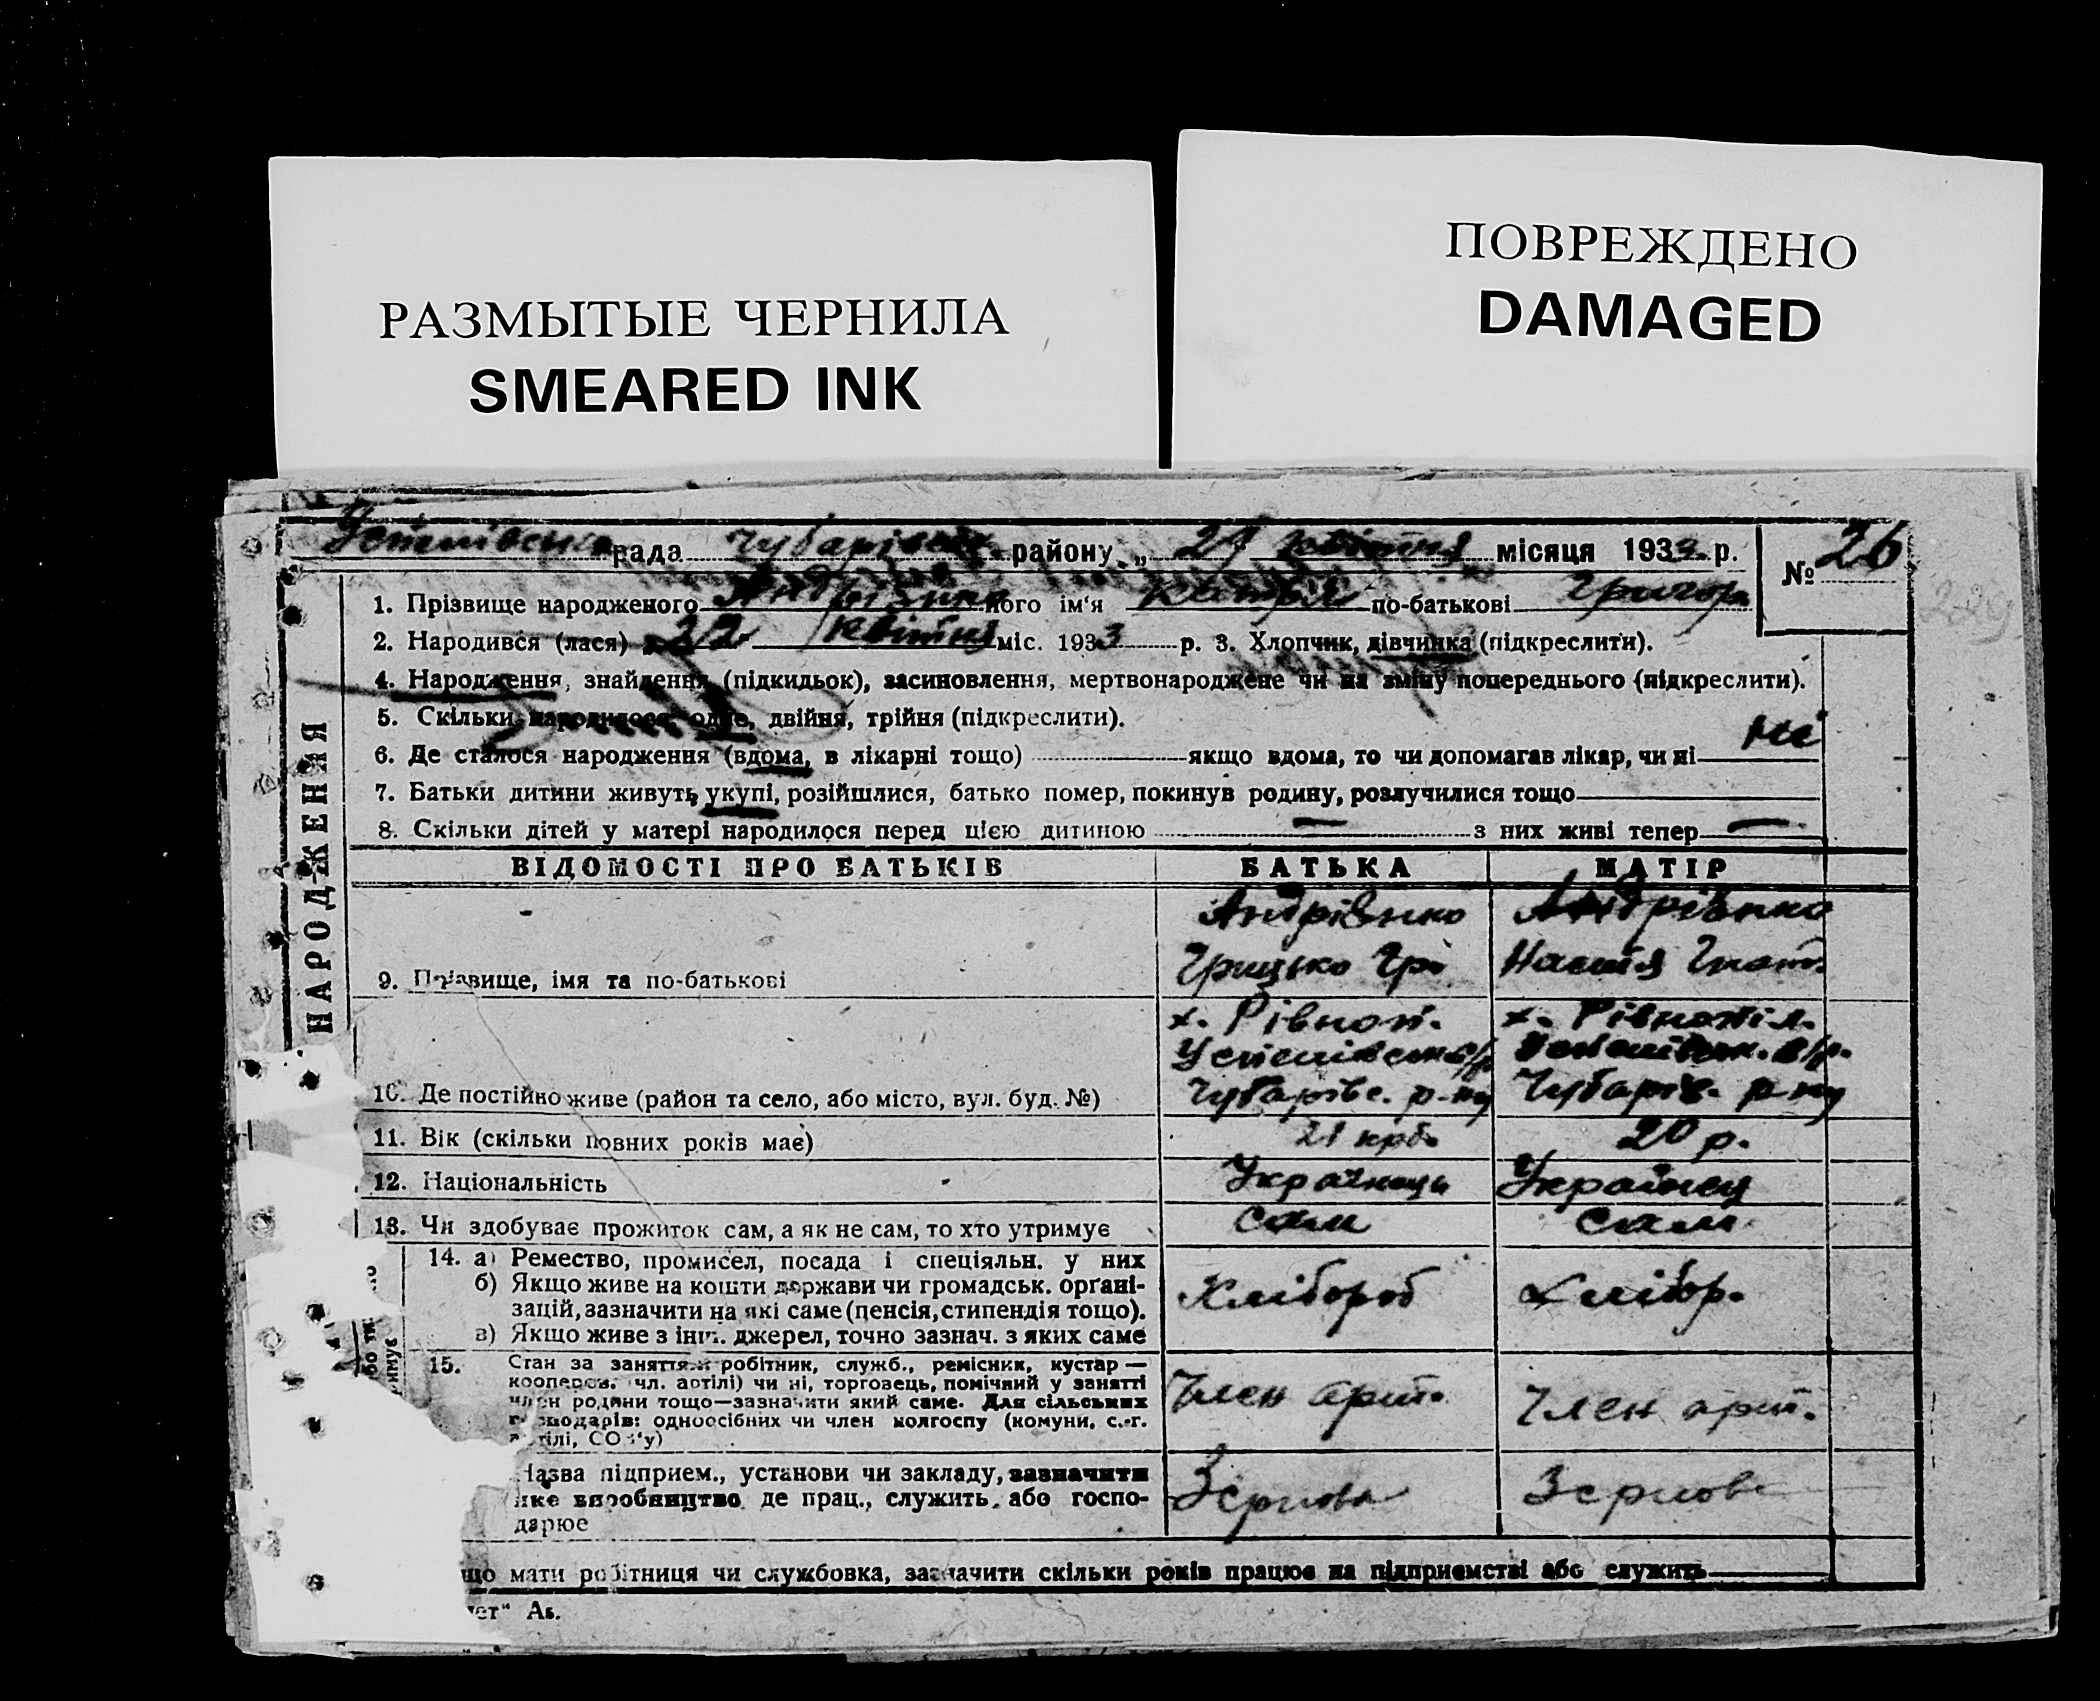 РАЗМЫТЫЕ ЧЕРНИЛА
SMEARED INK
ПОВРЕЖДЕНО
DAMAGED
Успенівська рада Чубарівськ. району „ 21 квітня місяця 1933 р.
№ 26
1. Прізвище народженого Андрієнко його ім‘я по-батькові Григор.
2. Народився (лася) 22 квітня міс. 1933 р. 3. Хлопчик, дівчинка (підкреслити).
4. Народження, знайдення (підкидьок), засиновлення, мертвонароджене чи на зміну попереднього (підкреслити).
5. Скільки народилося: одне, двійня, трійня (підкреслити).
6. Де сталося народження (вдома, в лікарні тощо) якщо вдома, то чи допомагав лікар, чи ні ні
7. Батьки дитини живуть укупі, розійшлися, батько помер, покинув родину, розлучилися тощо
8. Скільки дітей у матері народилося перед цією дитиною — з них живі тепер —
НАРОДЖЕННЯ
ВІДОМОСТІ ПРО БАТЬКІВ БАТЬКА МАТІР
9. Прізвище, імя та по-батькові
Андрієнко
Грицько Гр.
Андрієнко
Настя Гнат.
10. Де постійно живе (район та село, або місто, вул. буд. №)
х. Рівноп.
Успенівськ. с/р.
Чубарівс. р-ну
х. Рівнопіл.
Успенівськ. с/р.
Чубарів. р-ну
11. Вік (скільки повних років має) 21 20 р.
12. Національність Українець Українец
13. Чи здобуває прожиток сам, а як не сам, то хто утримує сам сам
14. а) Ремество, промисел, посада і спеціяльн. у них
б) Якщо живе на кошти держави чи громадськ. органі-
зацій, зазначити на які саме (пенсія, стипендія тощо).
в) Якщо живе з інш. джерел, точно зазнач. з яких саме
Хлібороб Хлібор.
15. Стан за заняттям робітник, служб., ремісник, кустар —
кооперов. (чл. артілі) чи ні, торговець, помічний у занятті
член родини тощо—зазначити який саме. Для сільських
господарів: одноосібних чи член колгоспу (комуни, с.-г.
артілі, СОЗ‘у)
Член арт. Член арт.
Назва підприєм., установи чи закладу, зазначити
яке виробництво, де прац., служить, або госпо-
дарює
Зернова Зернов.
що мати робітниця чи службовка, зазначити скільки років працює на підприємстві або служить
ет“ Аs.